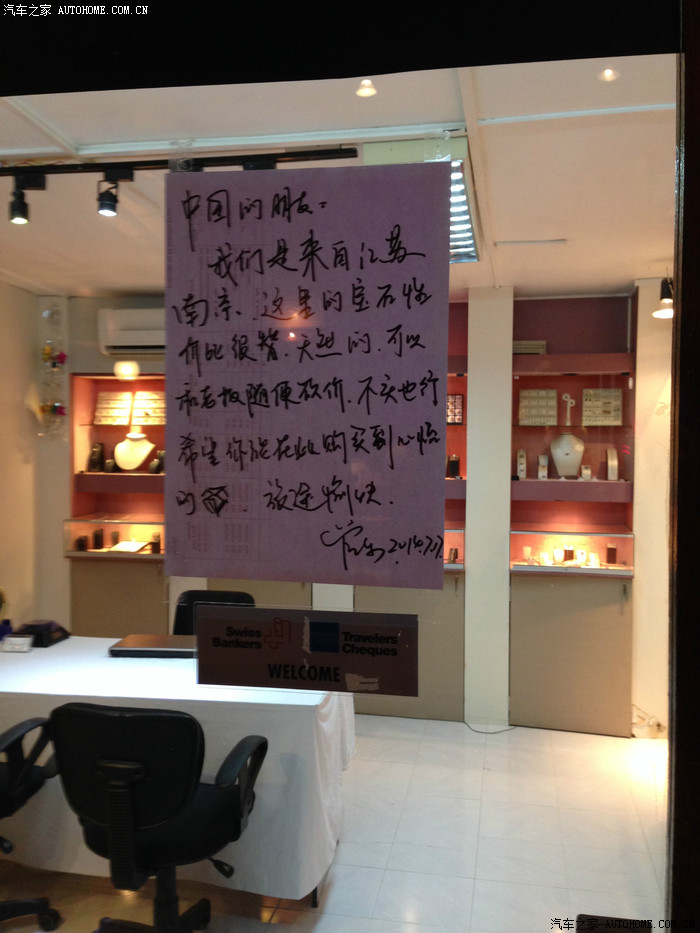 汽车之家 AUTOHOME.COM.CN
中国的朋友:
我们是来自江苏
南京、这里的宝石性
价比很赞、天然的、可以
和老板随便砍价、不买也行
希望你能在此购买到心怡
的 旅途愉快.
Swiss Bankers
Travelers Cheques
WELCOME
汽车之家 AUTOHOME.COM.CN